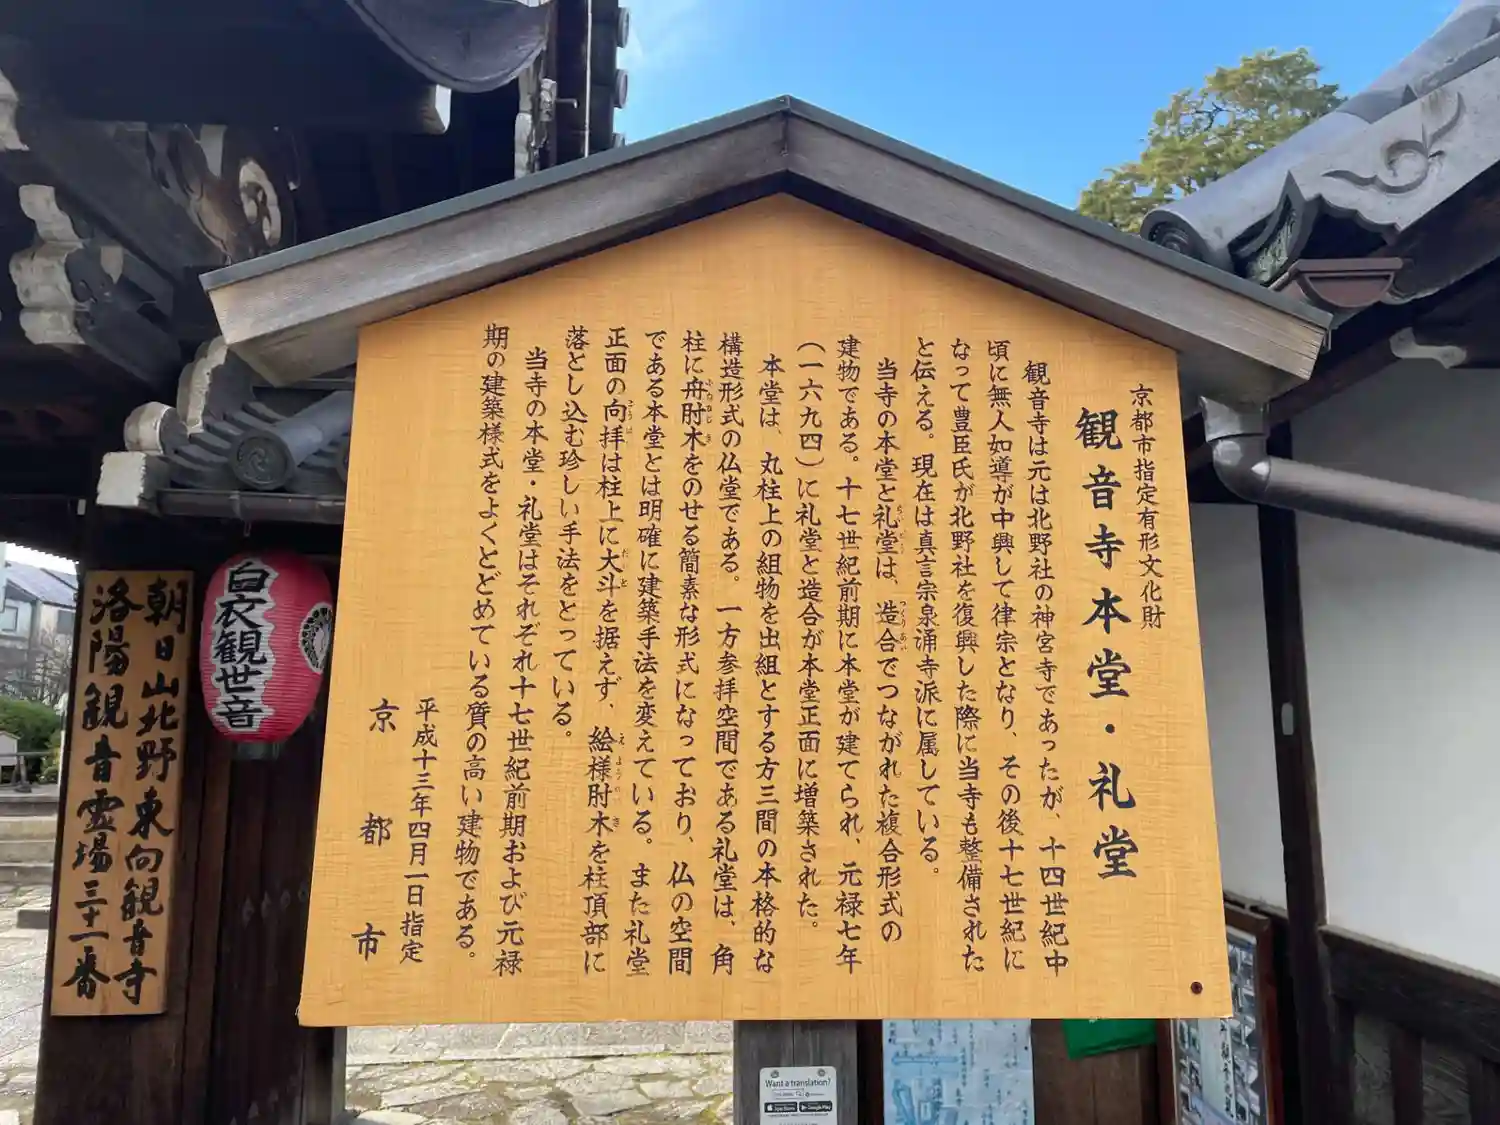 京都市指定有形文化財
観音寺本堂・礼堂
観音寺は元は北野社の神宮寺であったが、十四世紀中
頃に無人如導が中興して律宗となり、その後十七世紀に
なって豊臣氏が北野社を復興した際に当寺も整備された
と伝える。現在は真言宗泉涌寺派に属している。
当寺の本堂と礼堂は、造合でつながれた複合形式の
らいどう
つくりあい
建物である。十七世紀前期に本堂が建てられ、元禄七年
(一六九四)に礼堂と造合が本堂正面に増築された。
本堂は、丸柱上の組物を出組とする方三間の本格的な
構造形式の仏堂である。一方参拝空間である礼堂は、角
柱に舟肘木をのせる簡素な形式になっており、仏の空間
ふなひじき
である本堂とは明確に建築手法を変えている。また礼堂
正面の向拝は柱上に大斗を据えず、絵様肘木を柱頂部に
こうはい
だいと
えようひじき
落とし込む珍しい手法をとっている。
当寺の本堂・礼堂はそれぞれ十七世紀前期および元禄
期の建築様式をよくとどめている質の高い建物である。
平成十三年四月一日指定
京都市
白衣観世音
朝日山北野東向観音寺
洛陽観音霊場三十一番
Want a translation?
App Store
Google Play